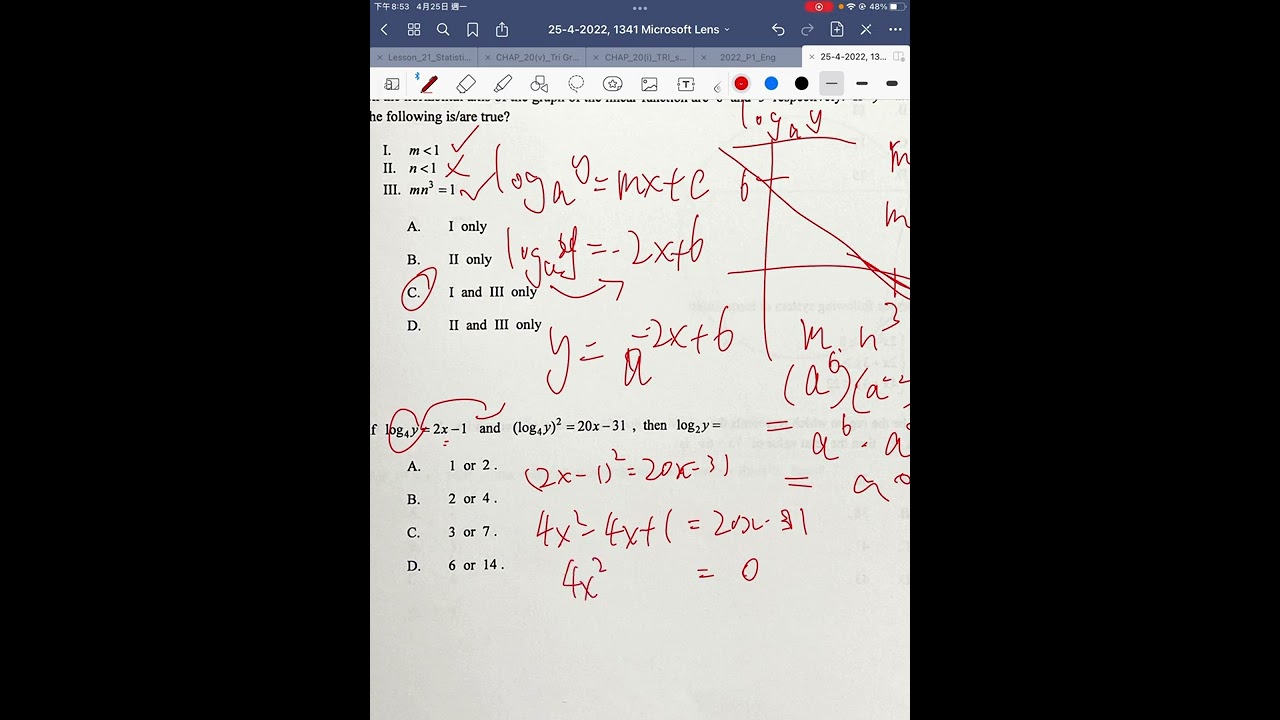 下午8:53 4月25日 週一
48%
25-4-2022, 1341 Microsoft Lens
Lesson_21_Statisti...
CHAP_20(v)_Tri Gr...
CHAP_20(i)_TRI_s...
2022_P1_Eng
25-4-2022, 13...
T
he following is/are true?
I. m<1
II. n<1
III. mn³=1
A. I only
B. II only
C. I and III only
D. II and III only
logₐy=mx+c
logₐy=-2x+6
y=a^-2x+6
logₐy
6
m
m
m.n³
(a⁶)(a^-2
= a⁶.a
= a⁰
f log₄y=2x-1 and (log₄y)²=20x-31, then log₂y=
A. 1 or 2.
B. 2 or 4.
C. 3 or 7.
D. 6 or 14.
(2x-1)²=20x-31
4x²-4x+1=20x-31
4x² = 0